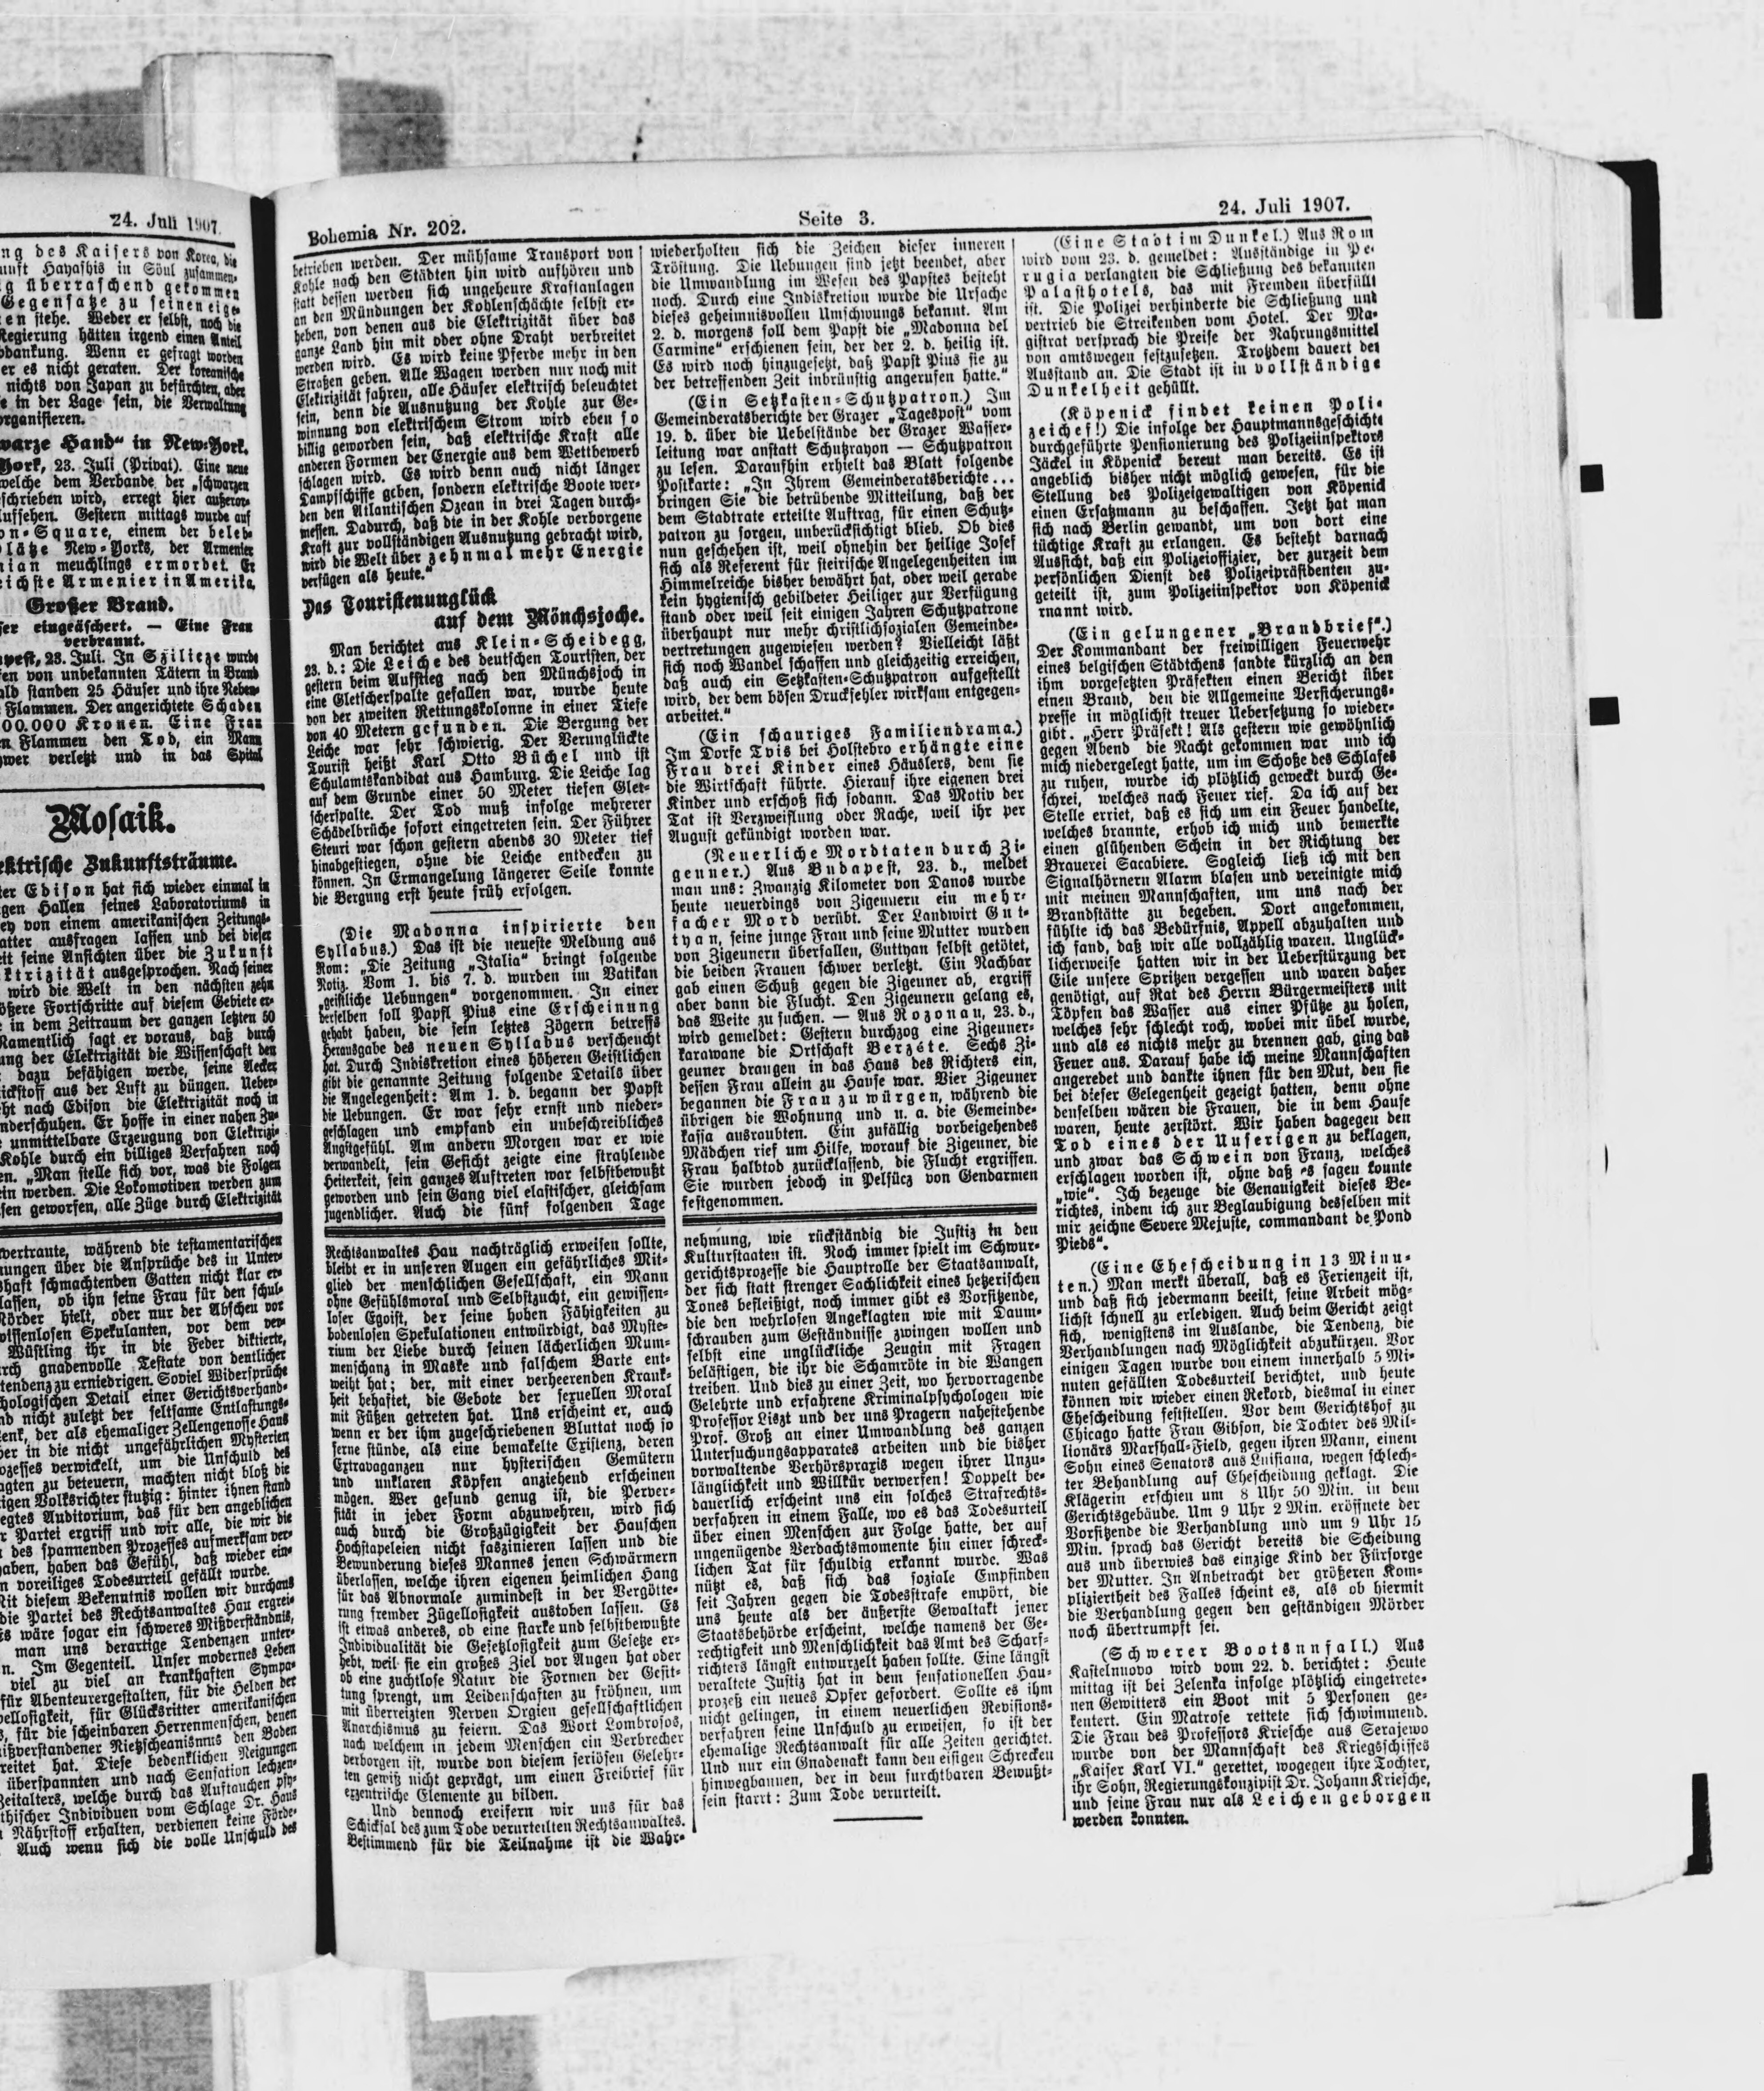 24. Juli 1907.
ng des Kaisers von Korea, die
unft Hayashis in Söul zusammen-
g überraschend gekommen
Gegensatze zu seinen eige-
en stehe. Weder er selbst, noch die
Regierung hätten irgend einen Anteil
bdankung. Wenn er gefragt worden
er es nicht geraten. Der koreanische
nichts von Japan zu befürchten, aber
e in der Lage sein, die Verwaltung
organisieren.
warze Hand" in New-York.
York, 23. Juli (Privat). Eine neue
welche dem Verbande der „schwarzen
schrieben wird, erregt hier außeror-
ufsehen. Gestern mittags wurde auf
on-Square, einem der beleb-
lätze New-Yorks, der Armenier
ian meuchlings ermordet. Er
eichste Armenier in Amerika.
Großer Brand.
ser eingeäschert. — Eine Frau
verbrannt.
pest, 23. Juli. In Szilicze wurde
en von unbekannten Tätern in Brand
ald standen 25 Häuser und ihre Neben-
Flammen. Der angerichtete Schaden
00.000 Kronen. Eine Frau
n Flammen den Tod, ein Mann
wer verletzt und in das Spital
Mosaik.
ektrische Zukunftsträume.
ter Edison hat sich wieder einmal in
gen Hallen seines Laboratoriums in
ey von einem amerikanischen Zeitungs-
atter ausfragen lassen und bei dieser
eit seine Ansichten über die Zukunft
ktrizität ausgesprochen. Nach seiner
wird die Welt in den nächsten zehn
ößere Fortschritte auf diesem Gebiete er-
e in dem Zeitraum der ganzen letzten 50
Namentlich sagt er voraus, daß durch
ung der Elektrizität die Wissenschaft den
dazu befähigen werde, seine Aecker
ickstoff aus der Luft zu düngen. Ueber-
ht nach Edison die Elektrizität noch in
nderschuhen. Er hoffe in einer nahen Zu-
e unmittelbare Erzeugung von Elektrizi-
Kohle durch ein billiges Verfahren noch
en. „Man stelle sich vor, was die Folgen
ein werden. Die Lokomotiven werden zum
sen geworfen, alle Züge durch Elektrizität
vertraute, während die testamentarischen
nungen über die Ansprüche des in Unter-
shaft schmachtenden Gatten nicht klar er-
lassen, ob ihn seine Frau für den schul-
Mörder hielt, oder nur der Abscheu vor
wissenlosen Spekulanten, vor dem ver-
Wüstling ihr in die Feder diktierte,
rch gnadenvolle Testate von dentlicher
tendenz zu erniedrigen. Soviel Widersprüche
hologischen Detail einer Gerichtsverhand-
nd nicht zuletzt der seltsame Entlastungs-
enk, der als ehemaliger Zellengenosse Haus
er in die nicht ungefährlichen Mysterien
ozesses verwickelt, um die Unschuld des
agten zu beteuern, machten nicht bloß die
igen Volksrichter stutzig: hinter ihnen stand
egtes Auditorium, das für den angeblichen
r Partei ergriff und wir alle, die wir die
des spannenden Prozesses aufmerksam ver-
aben, haben das Gefühl, daß wieder ein-
n voreiliges Todesurteil gefällt wurde.
Mit diesem Bekenntnis wollen wir durchaus
die Partei des Rechtsanwaltes Hau ergrei-
Es wäre sogar ein schweres Mißverständnis,
man uns derartige Tendenzen unter-
n. Im Gegenteil. Unser modernes Leben
viel zu viel an krankhaften Sympa-
für Abenteurergestalten, für die Helden der
ellosigkeit, für Glücksritter amerikanischen
s, für die scheinbaren Herrenmenschen, denen
ißverstandener Nietzscheanismus den Boden
reitet hat. Diese bedenklichen Neigungen
überspannten und nach Sensation lechzen-
Zeitalters, welche durch das Auftauchen psy-
thischer Individuen vom Schlage Dr. Haus
Nährstoff erhalten, verdienen keine Förde-
Auch wenn sich die volle Unschuld des
Bohemia Nr. 202.
Seite 3.
24. Juli 1907.
betrieben werden. Der mühsame Transport von
Kohle nach den Städten hin wird aufhören und
statt dessen werden sich ungeheure Kraftanlagen
an den Mündungen der Kohlenschächte selbst er-
heben, von denen aus die Elektrizität über das
ganze Land hin mit oder ohne Draht verbreitet
werden wird. Es wird keine Pferde mehr in den
Straßen geben. Alle Wagen werden nur noch mit
Elektrizität fahren, alle Häuser elektrisch beleuchtet
sein, denn die Ausnutzung der Kohle zur Ge-
winnung von elektrischem Strom wird eben so
billig geworden sein, daß elektrische Kraft alle
anderen Formen der Energie aus dem Wettbewerb
schlagen wird. Es wird denn auch nicht länger
Dampfschiffe geben, sondern elektrische Boote wer-
den den Atlantischen Ozean in drei Tagen durch-
messen. Dadurch, daß die in der Kohle verborgene
Kraft zur vollständigen Ausnutzung gebracht wird,
wird die Welt über zehnmal mehr Energie
verfügen als heute."
Das Touristenunglück
auf dem Mönchsjoche.
Man berichtet aus Klein-Scheidegg,
23. d.: Die Leiche des deutschen Touristen, der
gestern beim Aufstieg nach den Münchsjoch in
eine Gletscherspalte gefallen war, wurde heute
von der zweiten Rettungskolonne in einer Tiefe
von 40 Metern gefunden. Die Bergung der
Leiche war sehr schwierig. Der Verunglückte
Tourist heißt Karl Otto Büchel und ist
Schulamtskandidat aus Hamburg. Die Leiche lag
auf dem Grunde einer 50 Meter tiefen Glet-
scherspalte. Der Tod muß infolge mehrerer
Schädelbrüche sofort eingetreten sein. Der Führer
Steuri war schon gestern abends 30 Meter tief
hinabgestiegen, ohne die Leiche entdecken zu
können. In Ermangelung längerer Seile konnte
die Bergung erst heute früh erfolgen.
(Die Madonna inspirierte den
Syllabus.) Das ist die neueste Meldung aus
Rom: „Die Zeitung „Italia" bringt folgende
Notiz. Vom 1. bis 7. d. wurden im Vatikan
„geistliche Uebungen" vorgenommen. In einer
derselben soll Papst Pius eine Erscheinung
gehabt haben, die sein letztes Zögern betreffs
Herausgabe des neuen Syllabus verscheucht
hat. Durch Indiskretion eines höheren Geistlichen
gibt die genannte Zeitung folgende Details über
die Angelegenheit: Am 1. d. begann der Papst
die Uebungen. Er war sehr ernst und nieder-
geschlagen und empfand ein unbeschreibliches
Angstgefühl. Am andern Morgen war er wie
verwandelt, sein Gesicht zeigte eine strahlende
Heiterkeit, sein ganzes Auftreten war selbstbewußt
geworden und sein Gang viel elastischer, gleichsam
jugendlicher. Auch die fünf folgenden Tage
wiederholten sich die Zeichen dieser inneren
Tröstung. Die Uebungen sind jetzt beendet, aber
die Umwandlung im Wesen des Papstes besteht
noch. Durch eine Indiskretion wurde die Ursache
dieses geheimnisvollen Umschwungs bekannt. Am
2. d. morgens soll dem Papst die „Madonna del
Carmine" erschienen sein, der der 2. d. heilig ist.
Es wird noch hinzugesetzt, daß Papst Pius sie zu
der betreffenden Zeit inbrünstig angerufen hatte."
(Ein Setzkasten-Schutzpatron.) Im
Gemeinderatsberichte der Grazer „Tagespost" vom
19. d. über die Uebelstände der Grazer Wasser-
leitung war anstatt Schutzrayon — Schutzpatron
zu lesen. Daraufhin erhielt das Blatt folgende
Postkarte: „In Ihrem Gemeinderatsberichte ...
bringen Sie die betrübende Mitteilung, daß der
dem Stadtrate erteilte Auftrag, für einen Schutz-
patron zu sorgen, unberücksichtigt blieb. Ob dies
nun geschehen ist, weil ohnehin der heilige Josef
sich als Referent für steirische Angelegenheiten im
Himmelreiche bisher bewährt hat, oder weil gerade
kein hygienisch gebildeter Heiliger zur Verfügung
stand oder weil seit einigen Jahren Schutzpatrone
überhaupt nur mehr christlichsozialen Gemeinde-
vertretungen zugewiesen werden? Vielleicht läßt
sich noch Wandel schaffen und gleichzeitig erreichen,
daß auch ein Setzkasten-Schutzpatron aufgestellt
wird, der dem bösen Druckfehler wirksam entgegen-
arbeitet."
(Ein schauriges Familiendrama.)
Im Dorfe Tvis bei Holstebro erhängte eine
Frau drei Kinder eines Häuslers, dem sie
die Wirtschaft führte. Hierauf ihre eigenen drei
Kinder und erschoß sich sodann. Das Motiv der
Tat ist Verzweiflung oder Rache, weil ihr per
August gekündigt worden war.
(Neuerliche Mordtaten durch Zi-
geuner.) Aus Budapest, 23. d., meldet
man uns: Zwanzig Kilometer von Danos wurde
heute neuerdings von Zigeunern ein mehr-
facher Mord verübt. Der Landwirt Gut-
tyan, seine junge Frau und seine Mutter wurden
von Zigeunern überfallen, Guttyan selbst getötet,
die beiden Frauen schwer verletzt. Ein Nachbar
gab einen Schuß gegen die Zigeuner ab, ergriff
aber dann die Flucht. Den Zigeunern gelang es,
das Weite zu suchen. — Aus Rozonau, 23. d.,
wird gemeldet: Gestern durchzog eine Zigeuner-
karawane die Ortschaft Berzéte. Sechs Zi-
geuner drangen in das Haus des Richters ein,
dessen Frau allein zu Hause war. Vier Zigeuner
begannen die Frau zu würgen, während die
übrigen die Wohnung und u. a. die Gemeinde-
kassa ausraubten. Ein zufällig vorbeigehendes
Mädchen rief um Hilfe, worauf die Zigeuner, die
Frau halbtod zurücklassend, die Flucht ergriffen.
Sie wurden jedoch in Pelsücz von Gendarmen
festgenommen.
(Eine Stadt im Dunkel.) Aus Rom
wird vom 23. d. gemeldet: Ausständige in Pe-
rugia verlangten die Schließung des bekannten
Palasthotels, das mit Fremden überfüllt
ist. Die Polizei verhinderte die Schließung und
vertrieb die Streikenden vom Hotel. Der Ma-
gistrat versprach die Preise der Nahrungsmittel
von amtswegen festzusetzen. Trotzdem dauert der
Ausstand an. Die Stadt ist in vollständige
Dunkelheit gehüllt.
(Köpenick findet keinen Poli-
zeichef!) Die infolge der Hauptmannsgeschichte
durchgeführte Pensionierung des Polizeiinspektors
Jäckel in Köpenick bereut man bereits. Es ist
angeblich bisher nicht möglich gewesen, für die
Stellung des Polizeigewaltigen von Köpenick
einen Ersatzmann zu beschaffen. Jetzt hat man
sich nach Berlin gewandt, um von dort eine
tüchtige Kraft zu erlangen. Es besteht darnach
Aussicht, daß ein Polizeioffizier, der zurzeit dem
persönlichen Dienst des Polizeipräsidenten zu-
geteilt ist, zum Polizeiinspektor von Köpenick
rnannt wird.
(Ein gelungener „Brandbrief".)
Der Kommandant der freiwilligen Feuerwehr
eines belgischen Städtchens sandte kürzlich an den
ihm vorgesetzten Präfekten einen Bericht über
einen Brand, den die Allgemeine Versicherungs-
presse in möglichst treuer Uebersetzung so wieder-
gibt. „Herr Präfekt! Als gestern wie gewöhnlich
gegen Abend die Nacht gekommen war und ich
mich niedergelegt hatte, um im Schoße des Schlafes
zu ruhen, wurde ich plötzlich geweckt durch Ge-
schrei, welches nach Feuer rief. Da ich auf der
Stelle erriet, daß es sich um ein Feuer handelte,
welches brannte, erhob ich mich und bemerkte
einen glühenden Schein in der Richtung der
Brauerei Sacabiere. Sogleich ließ ich mit den
Signalhörnern Alarm blasen und vereinigte mich
mit meinen Mannschaften, um uns nach der
Brandstätte zu begeben. Dort angekommen,
fühlte ich das Bedürfnis, Appell abzuhalten und
ich fand, daß wir alle vollzählig waren. Unglück-
licherweise hatten wir in der Ueberstürzung der
Eile unsere Spritzen vergessen und waren daher
genötigt, auf Rat des Herrn Bürgermeisters mit
Töpfen das Wasser aus einer Pfütze zu holen,
welches sehr schlecht roch, wobei mir übel wurde,
und als es nichts mehr zu brennen gab, ging das
Feuer aus. Darauf habe ich meine Mannschaften
angeredet und dankte ihnen für den Mut, den sie
bei dieser Gelegenheit gezeigt hatten, denn ohne
denselben wären die Frauen, die in dem Hause
waren, heute zerstört. Wir haben dagegen den
Tod eines der Unserigen zu beklagen,
und zwar das Schwein von Franz, welches
erschlagen worden ist, ohne daß es sagen konnte
„wie". Ich bezeuge die Genauigkeit dieses Be-
richtes, indem ich zur Beglaubigung desselben mit
mir zeichne Severe Mejuste, commandant de Pond
Pieds".
(Eine Ehescheidung in 13 Minu-
ten.) Man merkt überall, daß es Ferienzeit ist,
und daß sich jedermann beeilt, seine Arbeit mög-
lichst schnell zu erledigen. Auch beim Gericht zeigt
sich, wenigstens im Auslande, die Tendenz, die
Verhandlungen nach Möglichkeit abzukürzen. Vor
einigen Tagen wurde von einem innerhalb 5 Mi-
nuten gefällten Todesurteil berichtet, und heute
können wir wieder einen Rekord, diesmal in einer
Ehescheidung feststellen. Vor dem Gerichtshof zu
Chicago hatte Frau Gibson, die Tochter des Mil-
lionärs Marshall-Field, gegen ihren Mann, einem
Sohn eines Senators aus Luisiana, wegen schlech-
ter Behandlung auf Ehescheidung geklagt. Die
Klägerin erschien um 8 Uhr 50 Min. in dem
Gerichtsgebäude. Um 9 Uhr 2 Min. eröffnete der
Vorsitzende die Verhandlung und um 9 Uhr 15
Min. sprach das Gericht bereits die Scheidung
aus und überwies das einzige Kind der Fürsorge
der Mutter. In Anbetracht der größeren Kom-
pliziertheit des Falles scheint es, als ob hiermit
die Verhandlung gegen den geständigen Mörder
noch übertrumpft sei.
(Schwerer Bootsnnfall.) Aus
Kastelnuovo wird vom 22. d. berichtet: Heute
mittag ist bei Zelenka infolge plötzlich eingetrete-
nen Gewitters ein Boot mit 5 Personen ge-
kentert. Ein Matrose rettete sich schwimmend.
Die Frau des Professors Kriesche aus Serajewo
wurde von der Mannschaft des Kriegsschiffes
„Kaiser Karl VI." gerettet, wogegen ihre Tochter,
ihr Sohn, Regierungskonzipist Dr. Johann Kriesche,
und seine Frau nur als Leichen geborgen
werden konnten.
Rechtsanwaltes Hau nachträglich erweisen sollte,
bleibt er in unseren Augen ein gefährliches Mit-
glied der menschlichen Gesellschaft, ein Mann
ohne Gefühlsmoral und Selbstzucht, ein gewissen-
loser Egoist, der seine hohen Fähigkeiten zu
bodenlosen Spekulationen entwürdigt, das Myste-
rium der Liebe durch seinen lächerlichen Mum-
menschanz in Maske und falschem Barte ent-
weiht hat; der, mit einer verheerenden Krank-
heit behaftet, die Gebote der sexuellen Moral
mit Füßen getreten hat. Uns erscheint er, auch
wenn er der ihm zugeschriebenen Bluttat noch so
ferne stünde, als eine bemakelte Existenz, deren
Extravaganzen nur hysterischen Gemütern
und unklaren Köpfen anziehend erscheinen
mögen. Wer gesund genug ist, die Perver-
sität in jeder Form abzuwehren, wird sich
auch durch die Großzügigkeit der Hauschen
Hochstapeleien nicht faszinieren lassen und die
Bewunderung dieses Mannes jenen Schwärmern
überlassen, welche ihren eigenen heimlichen Hang
für das Abnormale zumindest in der Vergötte-
rung fremder Zügellosigkeit austoben lassen. Es
ist etwas anderes, ob eine starke und selbstbewußte
Individualität die Gesetzlosigkeit zum Gesetze er-
hebt, weil sie ein großes Ziel vor Augen hat oder
ob eine zuchtlose Natur die Formen der Gesit-
tung sprengt, um Leidenschaften zu fröhnen, um
mit überreizten Nerven Orgien gesellschaftlichen
Anarchismus zu feiern. Das Wort Lombrosos,
nach welchem in jedem Menschen ein Verbrecher
verborgen ist, wurde von diesem seriösen Gelehr-
ten gewiß nicht geprägt, um einen Freibrief für
exzentrische Elemente zu bilden.
Und dennoch ereifern wir uns für das
Schicksal des zum Tode verurteilten Rechtsanwaltes.
Bestimmend für die Teilnahme ist die Wahr-
nehmung, wie rückständig die Justiz in den
Kulturstaaten ist. Noch immer spielt im Schwur-
gerichtsprozesse die Hauptrolle der Staatsanwalt,
der sich statt strenger Sachlichkeit eines hetzerischen
Tones befleißigt, noch immer gibt es Vorsitzende,
die den wehrlosen Angeklagten wie mit Daum-
schrauben zum Geständnisse zwingen wollen und
selbst eine unglückliche Zeugin mit Fragen
belästigen, die ihr die Schamröte in die Wangen
treiben. Und dies zu einer Zeit, wo hervorragende
Gelehrte und erfahrene Kriminalpsychologen wie
Professor Liszt und der uns Pragern nahestehende
Prof. Groß an einer Umwandlung des ganzen
Untersuchungsapparates arbeiten und die bisher
vorwaltende Verhörspraxis wegen ihrer Unzu-
länglichkeit und Willkür verwerfen! Doppelt be-
dauerlich erscheint uns ein solches Strafrechts-
verfahren in einem Falle, wo es das Todesurteil
über einen Menschen zur Folge hatte, der auf
ungenügende Verdachtsmomente hin einer schreck-
lichen Tat für schuldig erkannt wurde. Was
nützt es, daß sich das soziale Empfinden
seit Jahren gegen die Todesstrafe empört, die
uns heute als der äußerste Gewaltakt jener
Staatsbehörde erscheint, welche namens der Ge-
rechtigkeit und Menschlichkeit das Amt des Scharf-
richters längst entwurzelt haben sollte. Eine längst
veraltete Justiz hat in dem sensationellen Hau-
prozeß ein neues Opfer gefordert. Sollte es ihm
nicht gelingen, in einem neuerlichen Revisions-
verfahren seine Unschuld zu erweisen, so ist der
ehemalige Rechtsanwalt für alle Zeiten gerichtet.
Und nur ein Gnadenakt kann den eisigen Schrecken
hinwegbannen, der in dem furchtbaren Bewußt-
sein starrt: Zum Tode verurteilt.